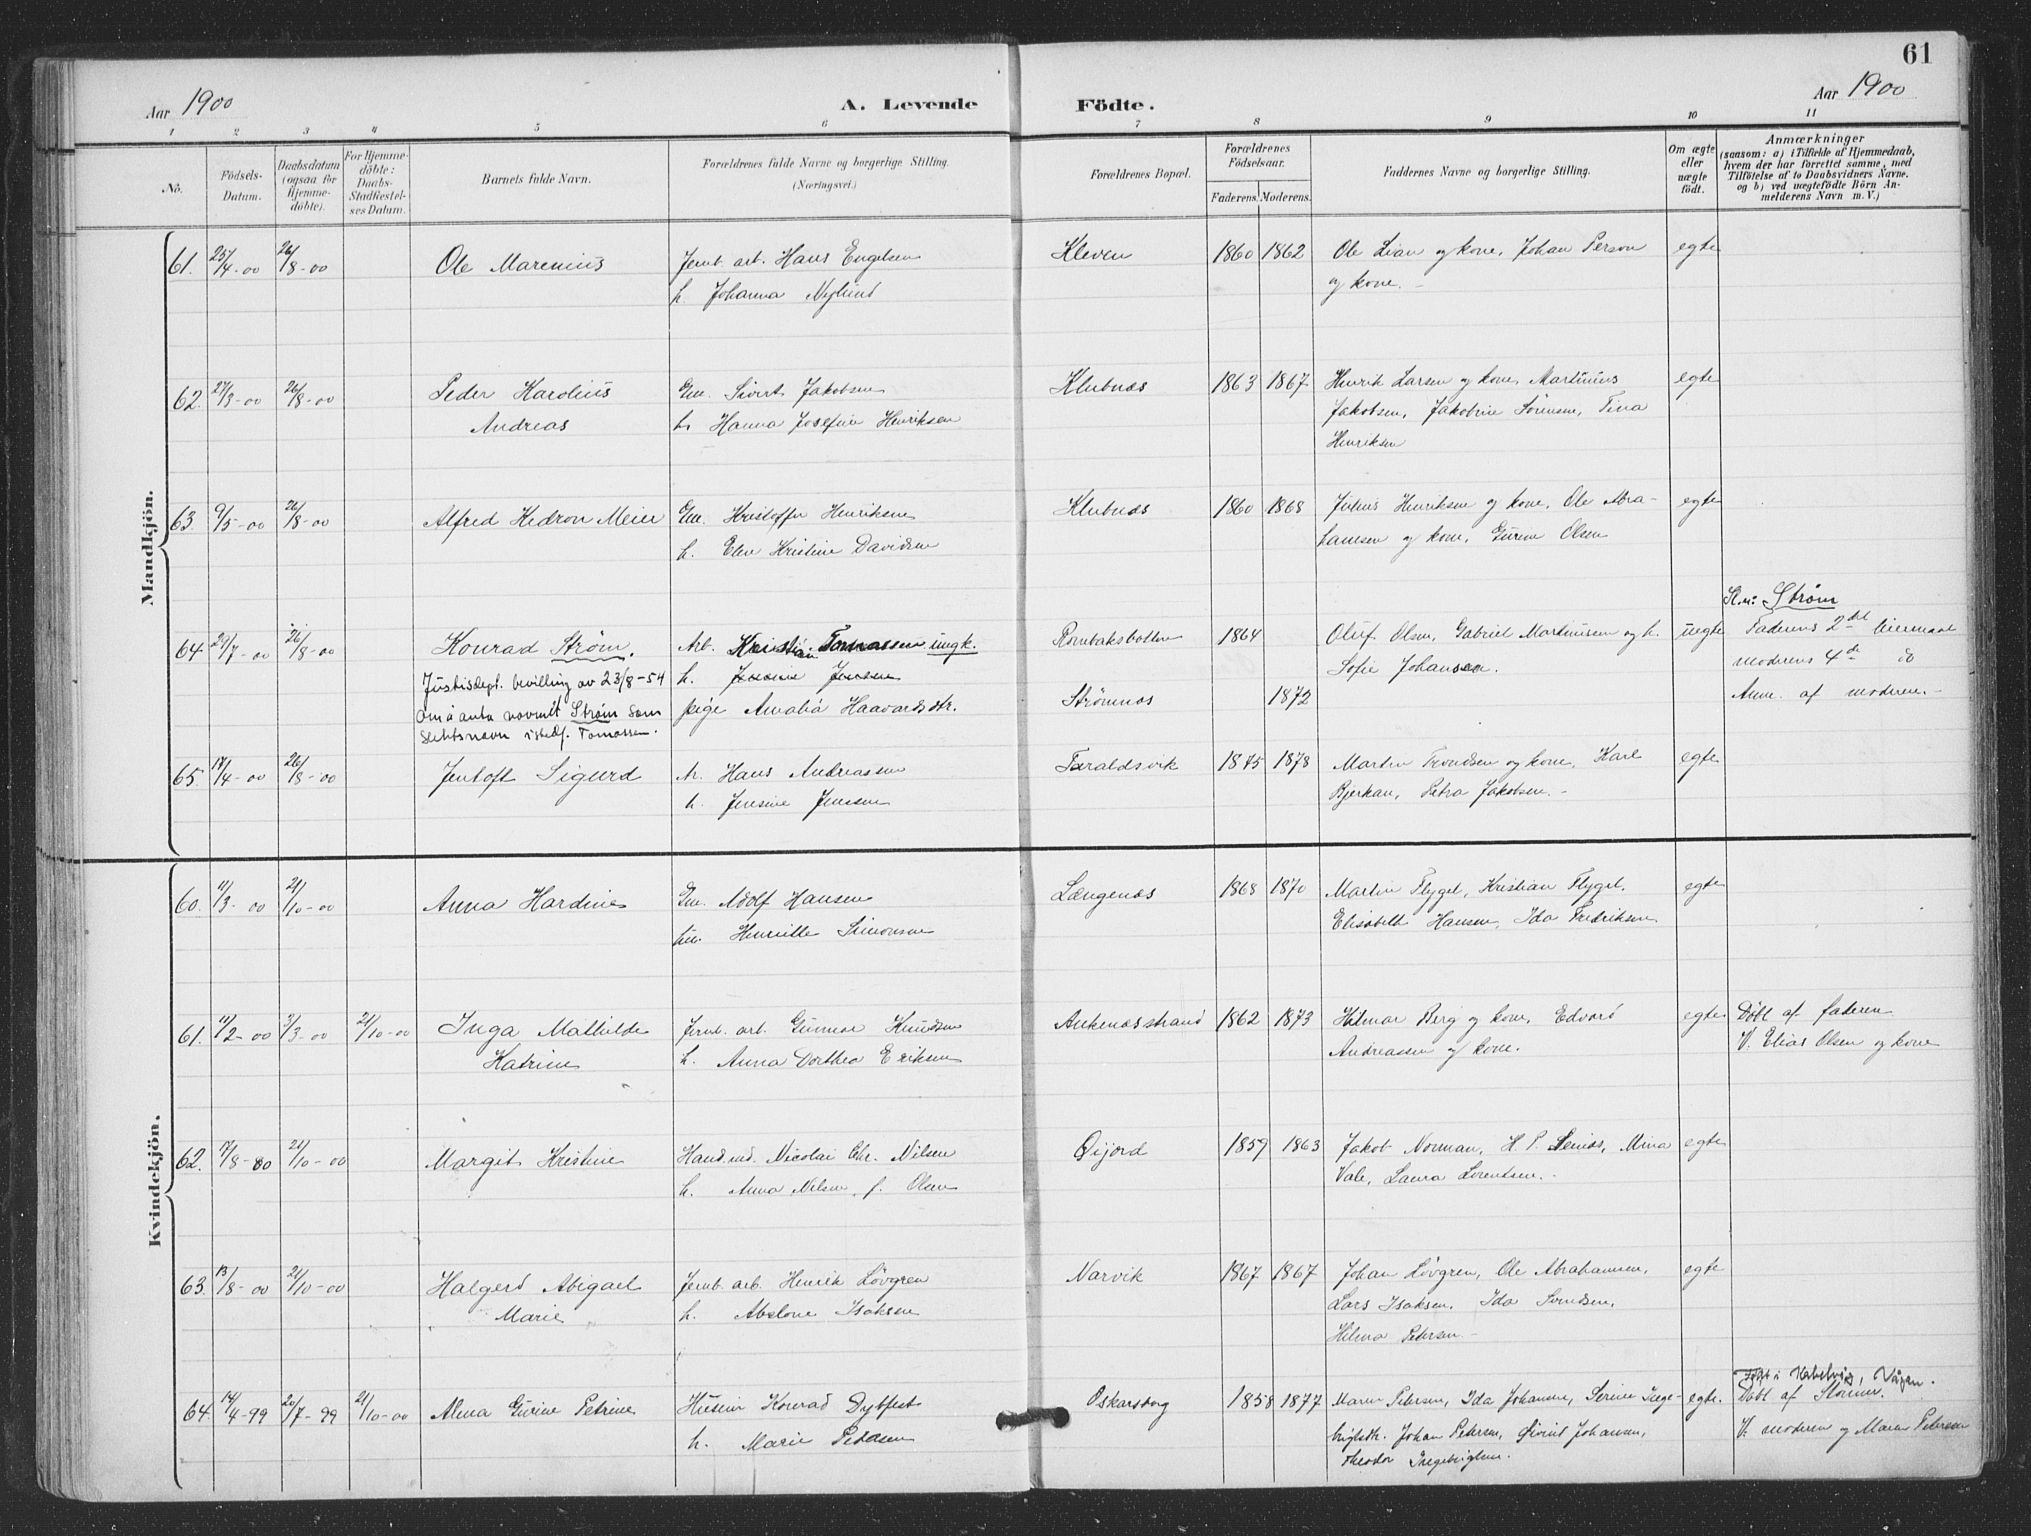 61
Aar 1900
A. Levende Födte.
Aar 1900
1 2 3 4 5 6 7 8 9 10 11
No.
Födsels-Datum.
Daabsdatum (ogsaa for Hjemme-döbte).
For Hjemme-döbte: Daabs-Stadfæstel-ses Datum.
Barnets fulde Navn.
Forældrenes fulde Navne og borgerlige Stilling.
(Næringsvei.)
Forældrenes Bopæl.
Forældrenes Födselsaar.
Faderens. Moderens.
Faddernes Navne og borgerlige Stilling.
Om ægte eller uægte födt.
Anmærkninger
(saasom: a) i Tilfælde af Hjemmedaab, hvem der har forrettet samme, med Tilföielse af to Daabsvidners Navne. og b) ved uægtefödte Börn An-melderens Navn m. V.)
Mandkjön.
61. 25/4-00 26/8-00 Ole Marenius Jernb. arb. Hans Engelsen Kleven 1860 1862 Ole Lian og kone, Johan Person egte
h. Johanna Nylund og kone. -
62. 27/3-00 26/8-00 Peder Karolius Gm. Sivert Jakobsen Klubnæs 1863 1867 Henrik Larsen og kone, Martinius egte
Andreas h. Hanna Josefine Henriksen Jakobsen, Jakobine Sørensen, Tina
Henriksen
63. 9/5-00 26/8-00 Alfred Kedron Meier Gm. Kristoffer Henriksen Klubnæs 1860 1868 Julius Henriksen og kone, Ole Abra- egte
h. Elen Kristine Davidsen hamsen og kone, Gurine Olsen
Sl.n: Strøm
64. 29/7-00 26/8-00 Konrad Strøm. Arb. Kristian Tomassen ungk. Rombaksbotten 1864 Oluf Olsen, Gabriel Martinusen og h. uegte Faderens 2det leiermaal
Justisdept. bevilling av 23/8-54 h. Jensine Jensen Sofie Johansen. moderens 4de do
om å anta navnet Strøm som pige Amalia Haavardsdtr. Strømnes 1872 Anm. af moderen. -
slektsnavn istedf. Tomassen.
65. 17/4-00 26/8-00 Jentoft Sigurd Ar. Hans Andreassen Taraldsvik 1875 1878 Martin Trondsen og kone, Karl egte
h. Jensine Jensen Bjerkan, Petra Jakobsen. -
Kvindekjön.
60. 11/3-00 21/10-00 Anna Hardine Gm. Adolf Hansen Længenæs 1868 1870 Martin Flygel, Kristian Flygel. egte
hu. Henriette Simonsen Elisabeth Hansen, Ida Fredriksen
61. 11/2-00 3/3-00 21/10-00 Inga Mathilde Jernb. arb. Gunnar Knudsen Ankenæsstrand 1862 1873 Hilmar Berg og kone, Edvard egte Døbt af faderen
Katrine h. Anna Dorthea Eriksen Andreassen og kone. V. Elias Olsen og kone
62. 17/8-00 21/10-00 Margit Kristine Handmd. Nicolai Chr. Nilsen Øijord 1859 1863 Jakob Norman, H. P. Mina egte
h. Anna Nilsen f. Olsen Vale, Laura Lorentsen. -
63. 13/8-00 21/10-00 Halgerd Abigael Jernb. arb. Henrik Løvgren Narvik 1867 1867 Johan Løvgren, Ole Abrahamsen, egte
Marie h. Abelone Isaksen Lars Isaksen, Ida Svendsen,
Hilma Petersen. -
Født i Kabelvåg, Vågan.
64. 14/4-99 20/7-99 21/10-00 Alma Gurine Petrine Konrad Dybfest Oskarsborg 1858 1877 Maren Petersen, Ida Johansen, Serine Inge- egte. Døbt af
h. Marie Pedersen brigtsdtr. Johan Petersen, Sivert Johansen, V. moderen og Maren Petersen
Theodor Ingebrigtsen.